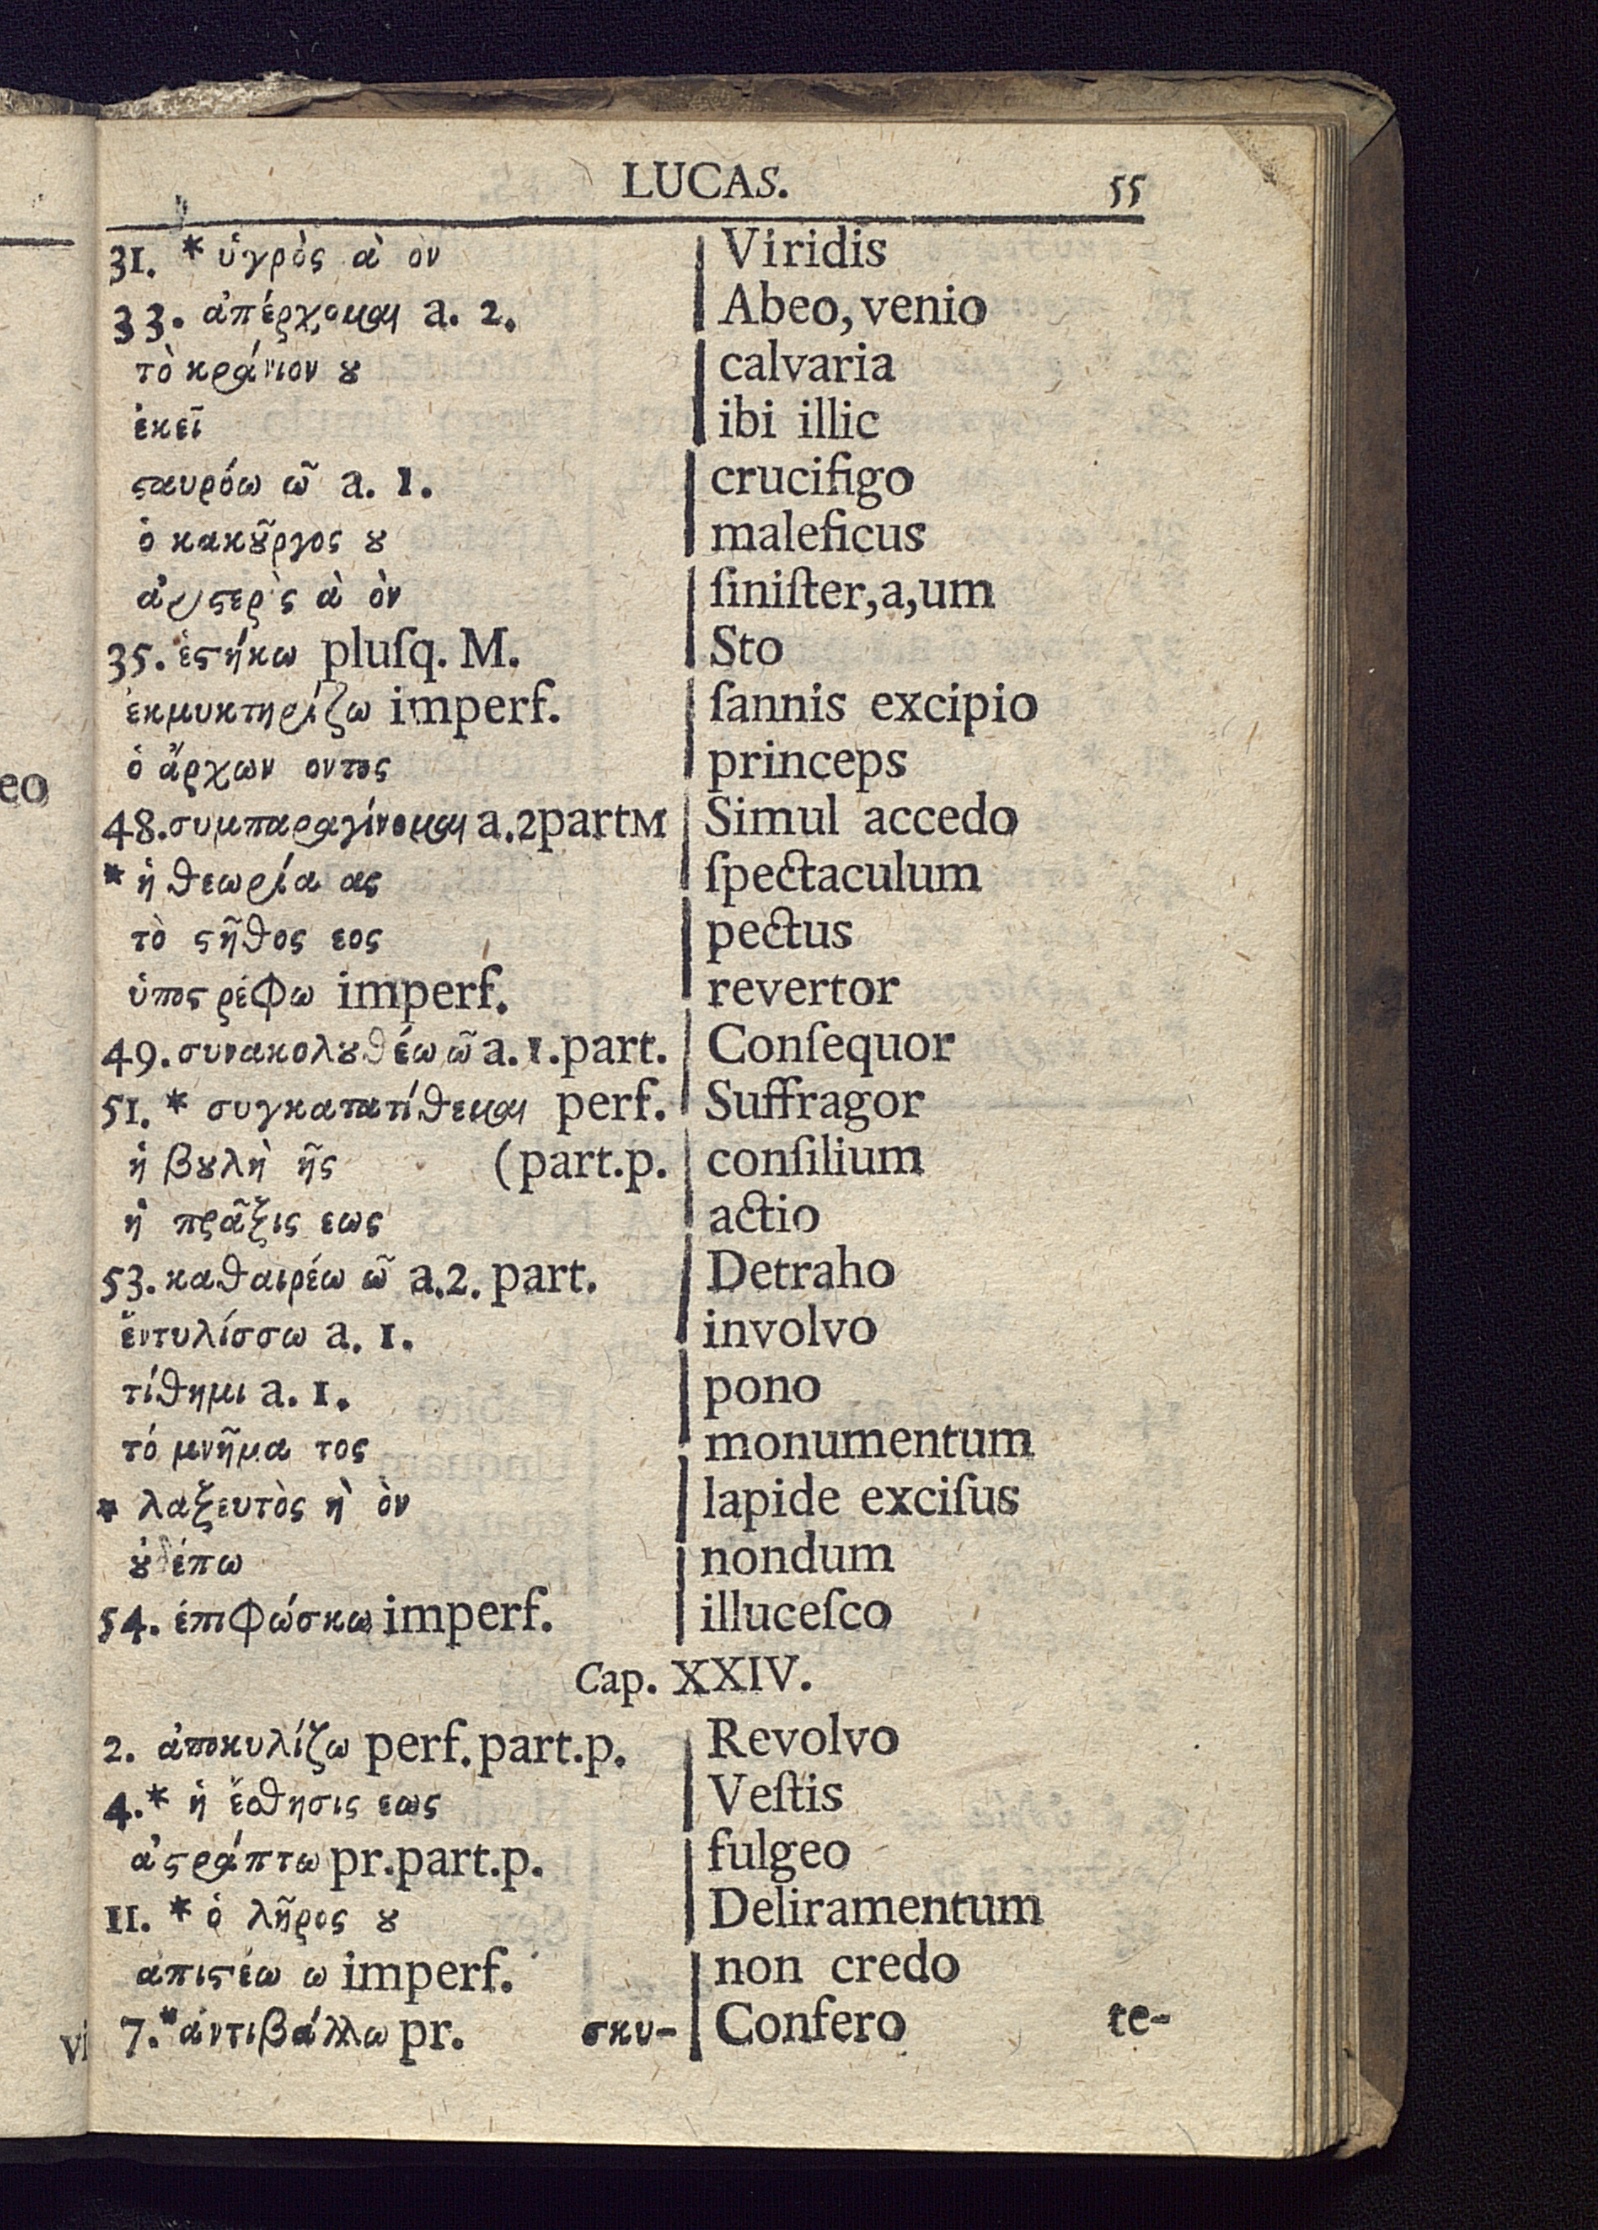 LUCAS. 55
31. * ὑγρὸς ὰ ὸν Viridis
33. ἀπέρχομαι a. 2. Abeo, venio
τὸ κράνιον ȣ calvaria
ἐκεῖ ibi illic
ϛαυρόω ῶ a. 1. crucifigo
ὁ κακȣ͂ργος ȣ maleficus
ἀριϛερὸς ὰ ὸν ſiniſter, a, um
35. ἑϛήκω pluſq. M. Sto
ἐκμυκτηρίζω imperf. ſannis excipio
ὁ ἄρχων οντος princeps
48. συμπαραγίνομαι a. 2 part M Simul accedo
* ἡ θεωρία ας ſpectaculum
τὸ ϛῆθος εος pectus
ὑποϛρέφω imperf. revertor
49. συνακολȣθέω ῶ a. 1. part. Conſequor
51. * συγκατατίθεμαι perf. Suffragor
ἡ βȣλὴ ῆς (part. p. conſilium
ἡ πρᾶξις εως actio
53. καθαιρέω ῶ a. 2. part. Detraho
ἐντυλίσσω a. 1. involvo
τίθημι a. 1. pono
τό μνῆμα τος monumentum
* λαξευτὸς ὴ ὸν lapide exciſus
ȣ̓δέπω nondum
54. ἐπιφώσκω imperf. illuceſco
Cap. XXIV.
2. ἀποκυλίζω perf. part. p. Revolvo
4. * ἡ ἔσθησις εως Veſtis
ἀϛράπτω pr. part. p. fulgeo
11. * ὁ λῆρος ȣ Deliramentum
ἀπιϛέω ω imperf. non credo
7. * ἀντιβάλλω pr. Confero
σκυ- te-